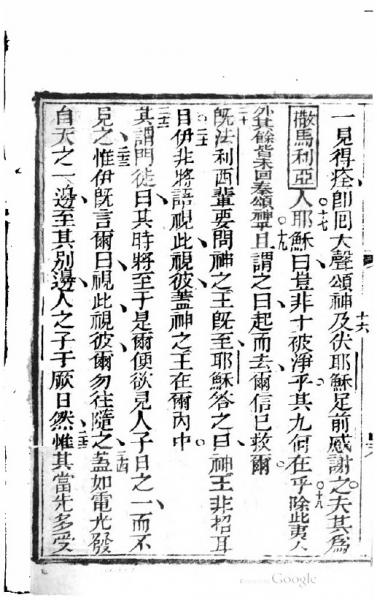 一見得痊即囘大聲頌神及伏耶穌足前感謝之夫其為
十六
撒馬利亞人耶穌曰豈非十被淨乎其九何在乎除此夷人
十七
十八
外其餘皆未回奉頌神乎且謂之曰起而去爾信已救爾
十九
既法利西輩要問神之王既至耶穌答之曰神王非招耳
二十
目伊非將語視此視彼蓋神之王在爾內中
其謂門徒曰其時將至于是爾便欲見人子日之一而不
見之惟伊既言爾曰視此視彼爾勿往隨之蓋如電光發
自天之一邊至其別邊人之子于厥日然惟其當先多受
Google